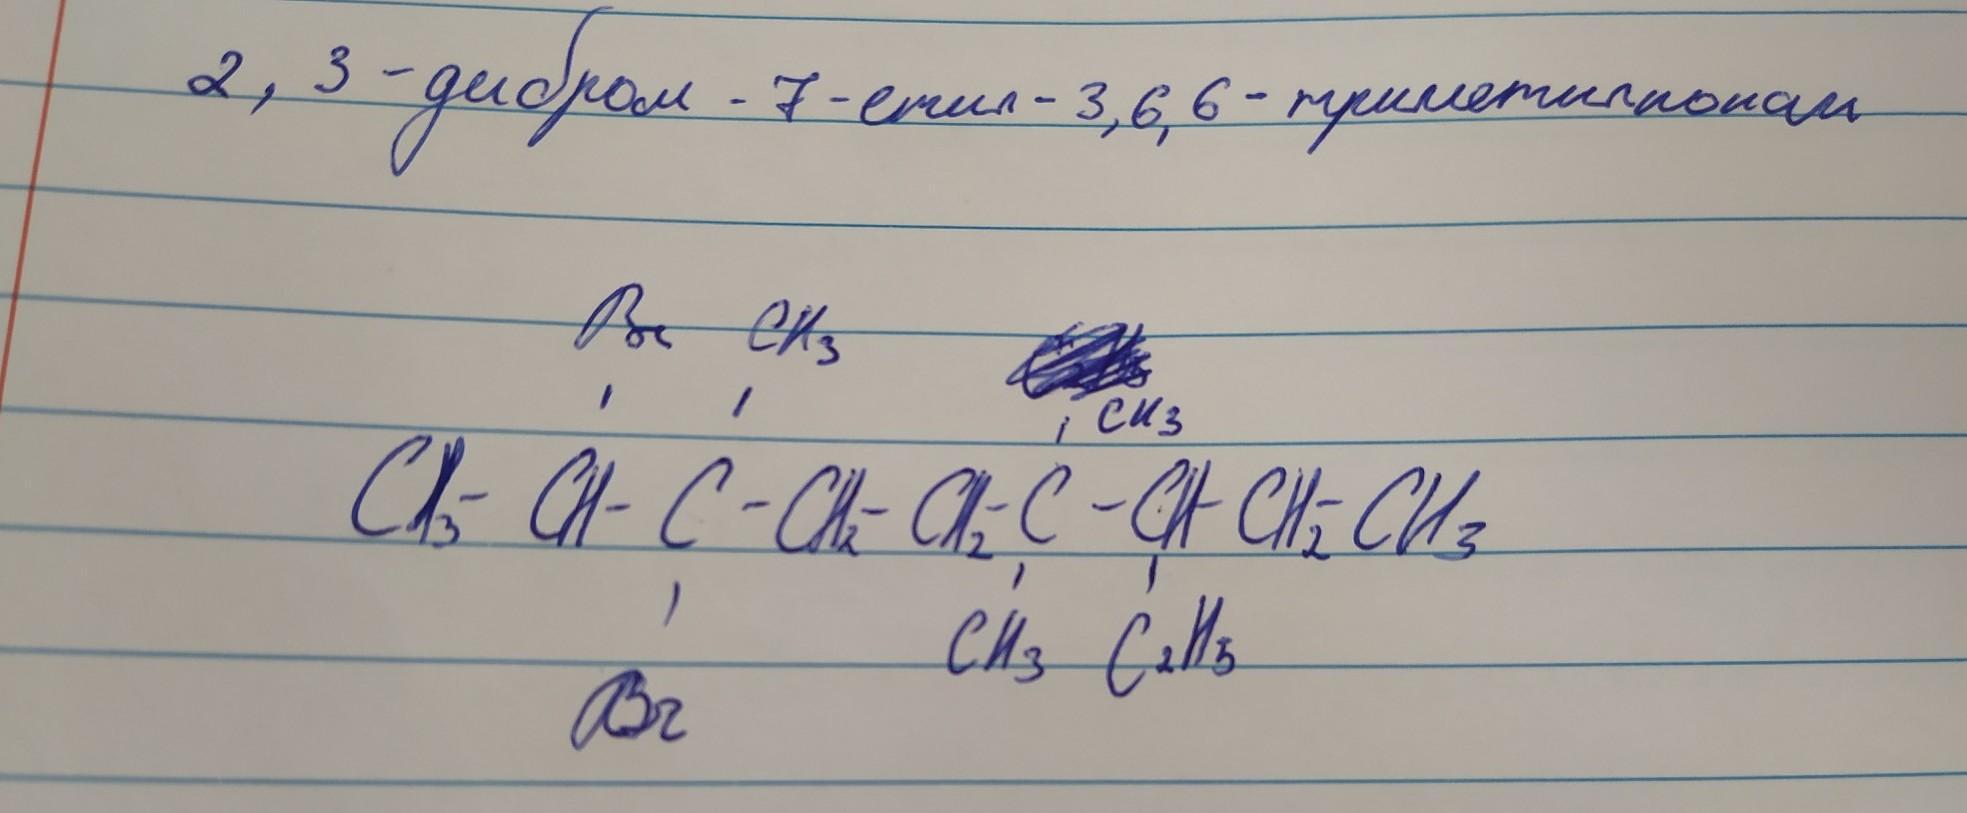 2, 3 - дибром - 7 - етил - 3,6,6 - триметилнонан
Br CH3
CH3
CH3 - CH - C - CH2 - CH2 - C - CH - CH2 - CH3
CH3 C2H5
Br